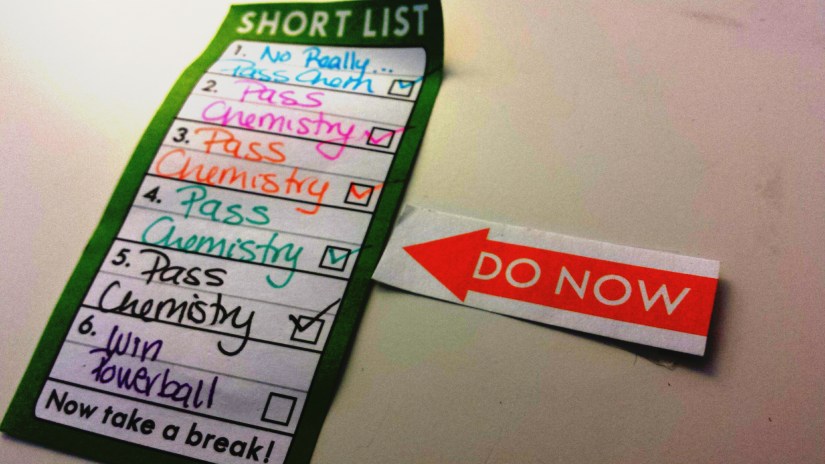 SHORT LIST
1. No Really...
Pass Chem
2. Pass
Chemistry
3. Pass
Chemistry
4. Pass
Chemistry
5. Pass
Chemistry
6. Win
Powerball
Now take a break!
DO NOW